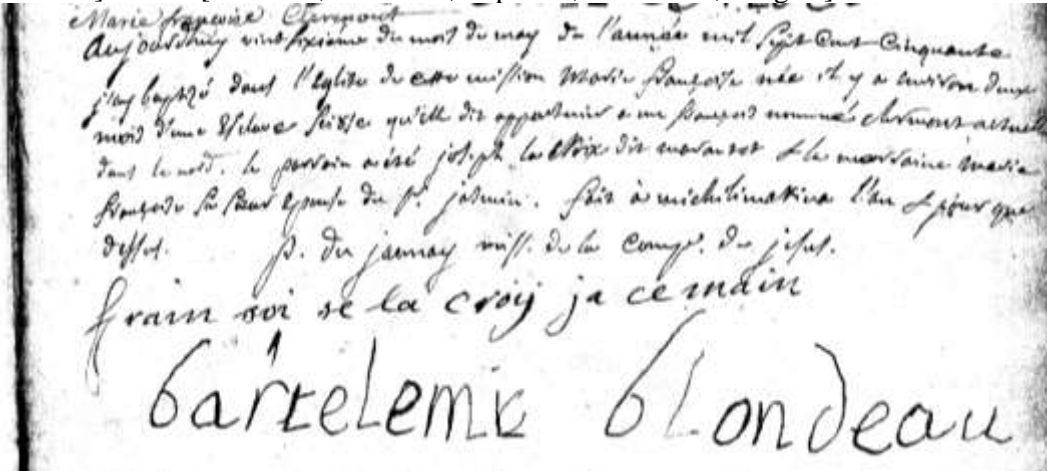 Marie françoise Cleremont
Aujourdhuy vint sixieme du mois de may de l'année mil sept Cent Cinquante
j'ay baptizé dans l'Eglise de cette mission Marie françoise née il y a environ deux
mois d'une Esclave qu'elle dit appartenir a un françois nommé clermont
dans le nord. le parrain a été joseph la dit & la marraine marie
françoise epouse du Sr. jasmin. fait à michilimakina l'an & jour que
dessus. P. du jaunay miss. de la comp. de jesus.
frain soi se la croiy ja ce main
bartelemie blondeau